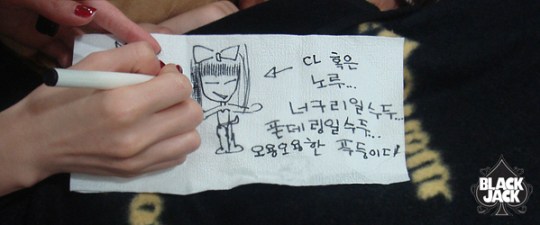 CL 혹은
노루...
너구리일수두...
폰데링일수두...
오용오용한 푸둥이다!
BLACK
JACK